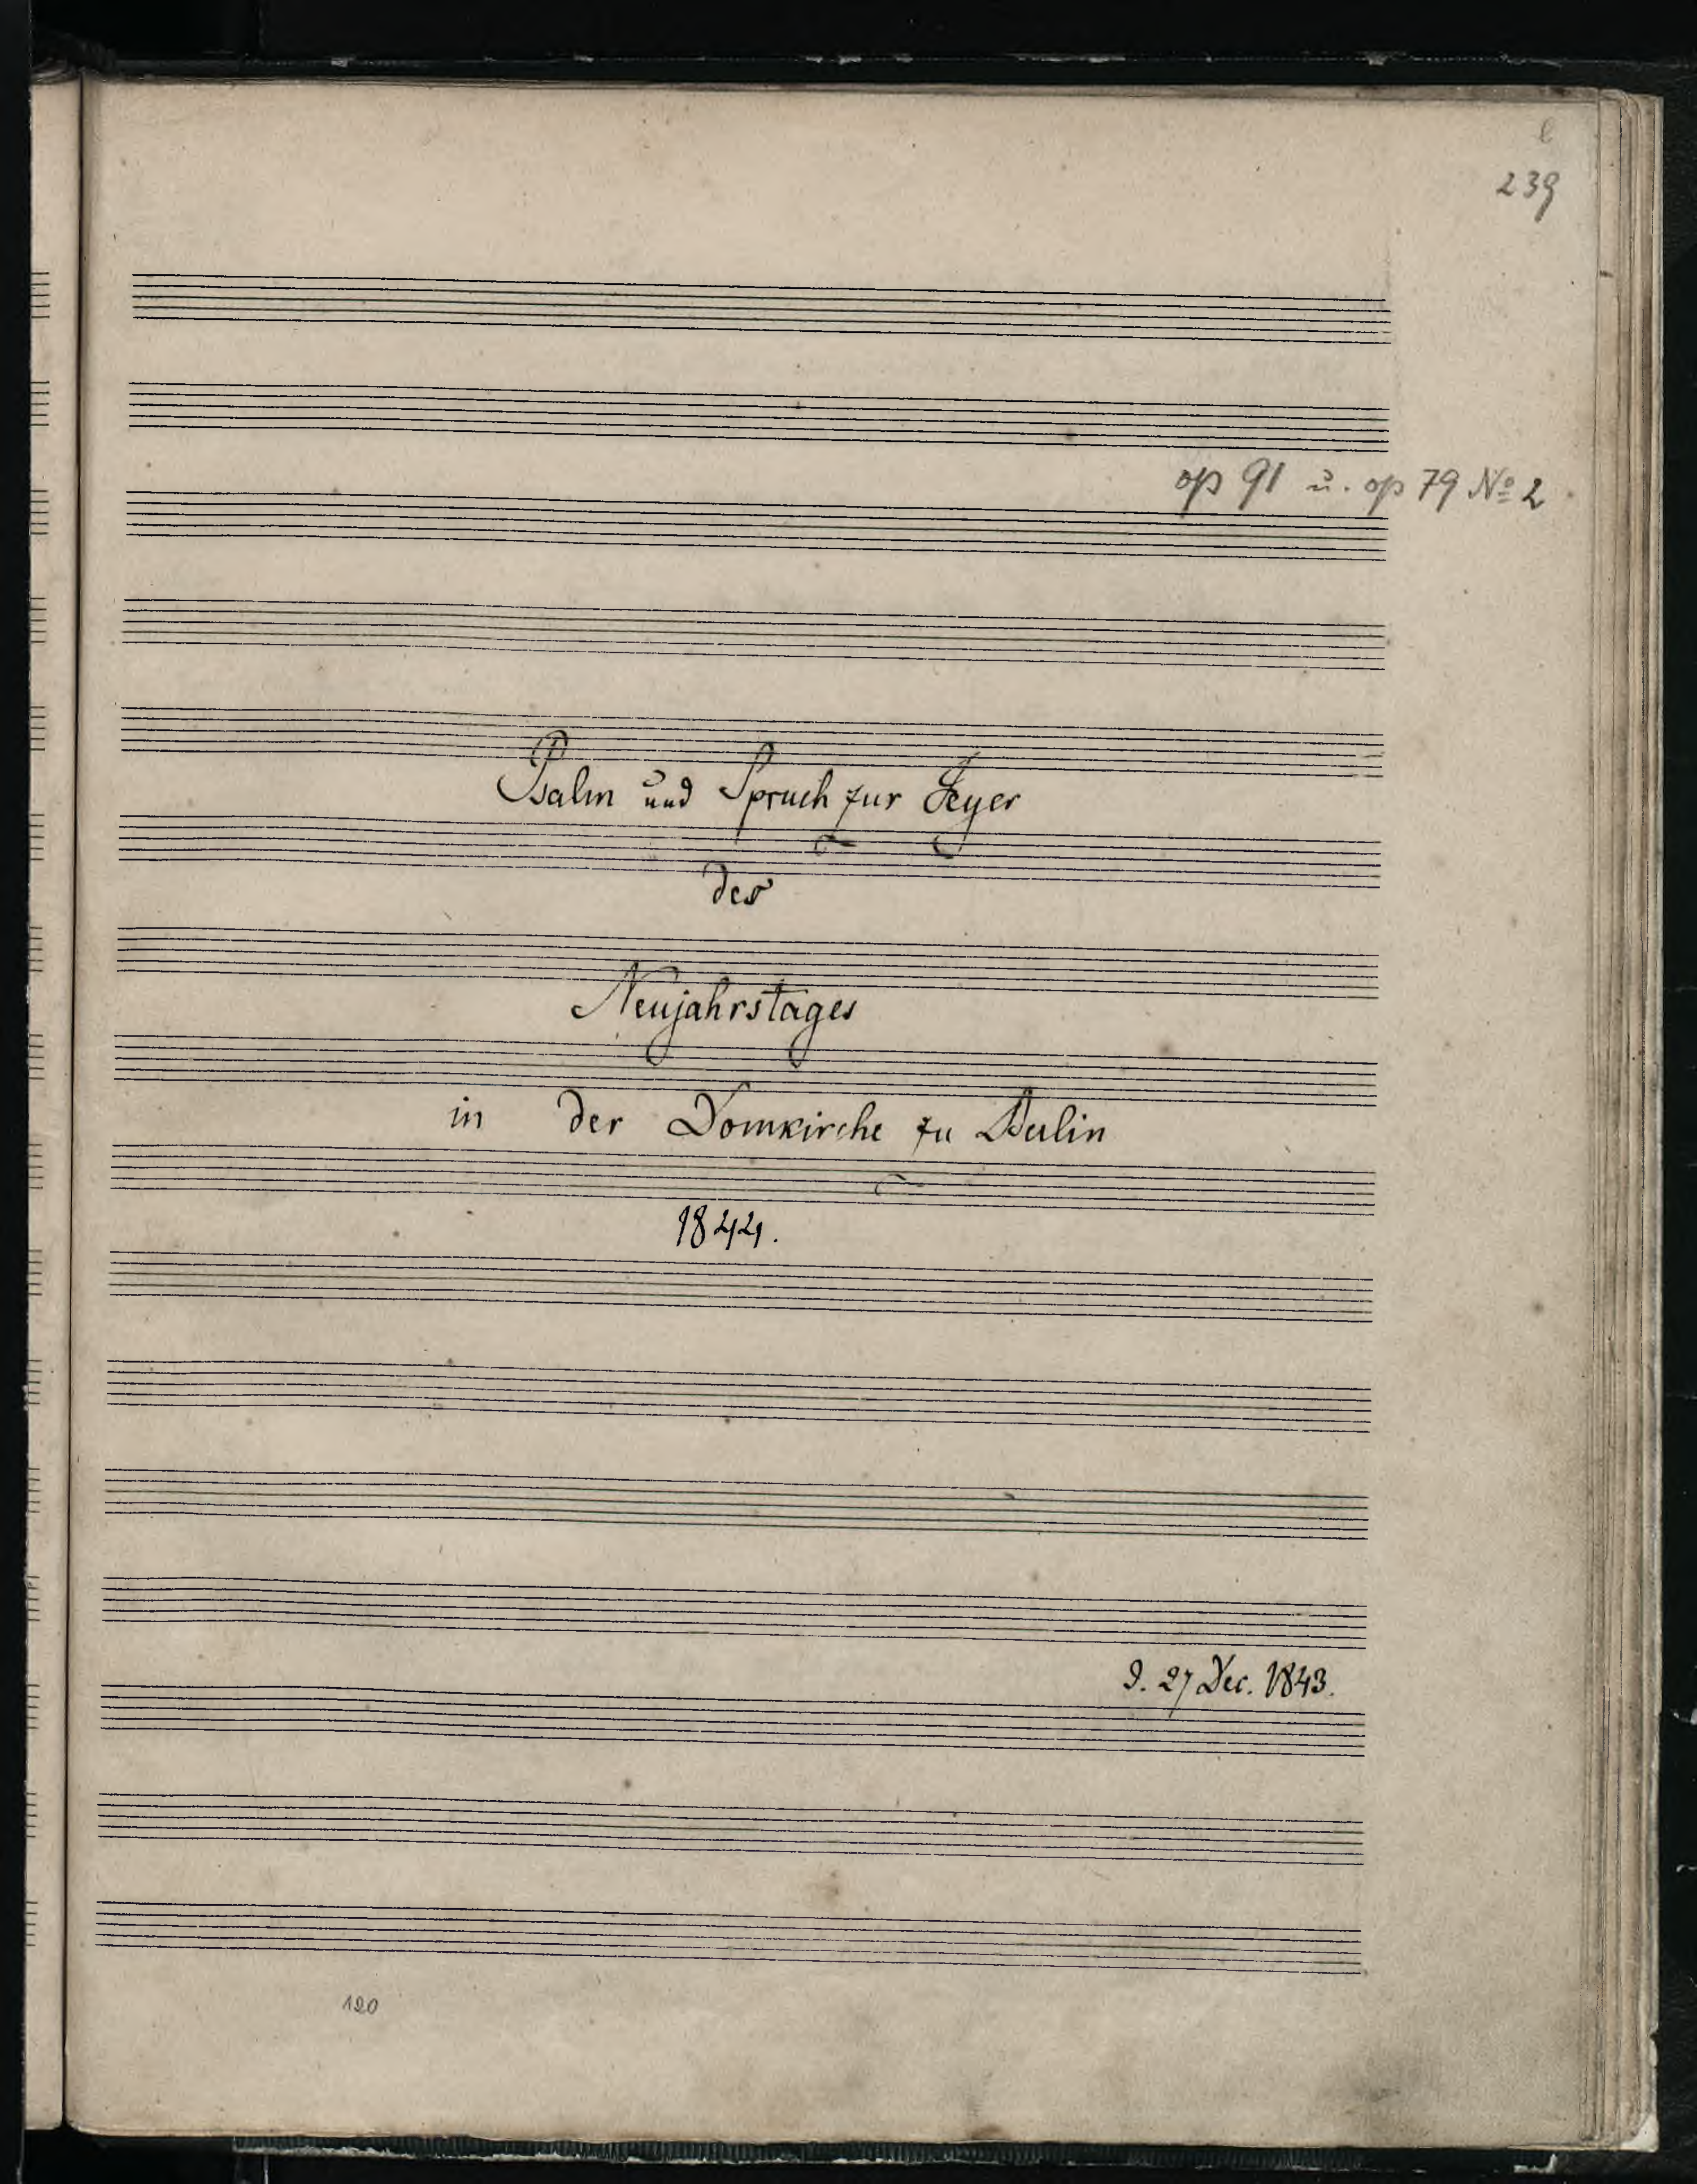 239
op 91 u. op 79 No 2
Psalm und Spruch zur Feyer
des
Neujahrstages
in der Domkirche zu Berlin
1844.
27 Dec. 1843.
120